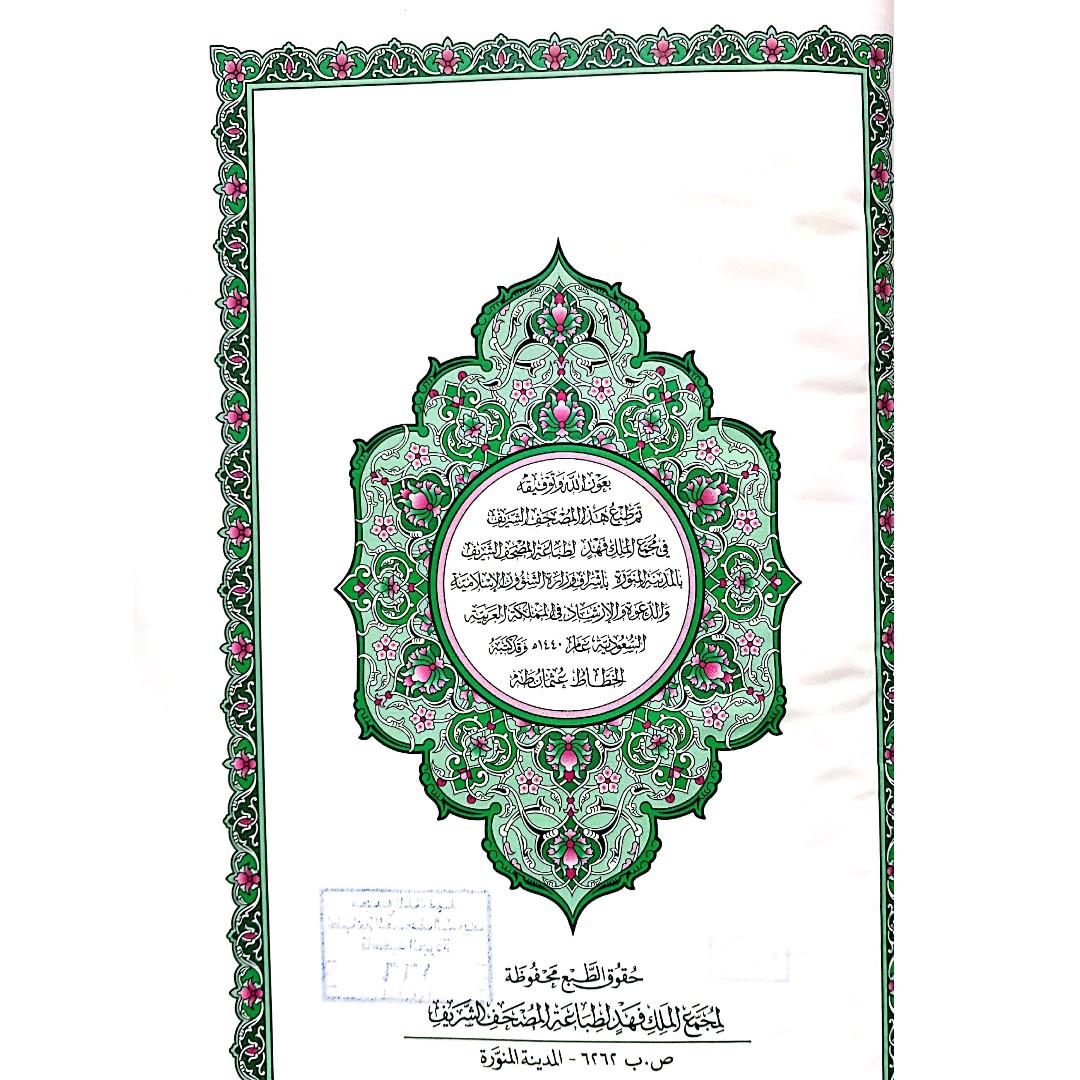 بعون الله وتوفيقه
تم طبع هذا المصحف الشريف
في مجمع الملك فهد لطباعة المصحف الشريف
بالمدينة المنورة بإشراف وزارة الشؤون الإسلامية
والدعوة والإرشاد في المملكة العربية
السعودية عام ١٤٤٠ه وقد كتبه
الخطاط عثمان طه
حُقُوق الطَّبع مَحْفُوظَة
لِمُجَمَّع المَلِك فَهد لطِبَاعَةِ المُصْحَفِ الشَّريف
ص.ب ٦٢٦٢ - المدينة المنوَّرة